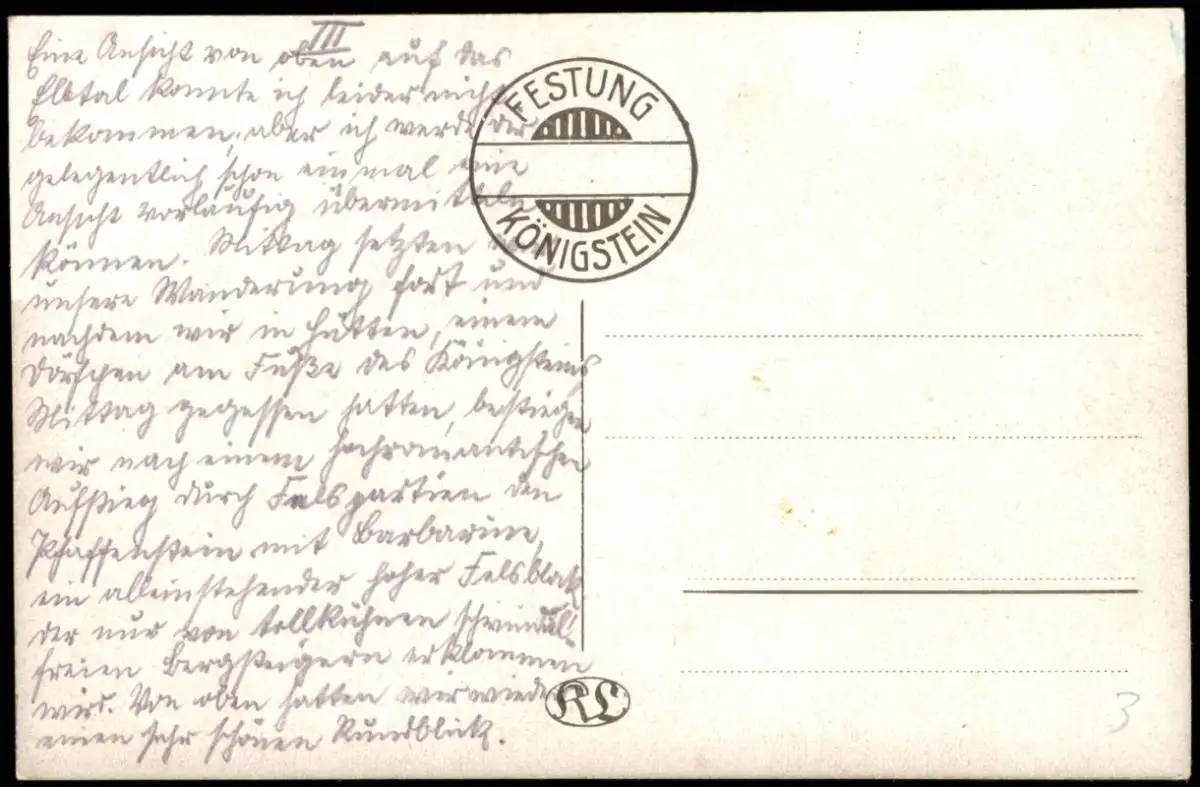 III
Eine Ansicht von oben auf das
Elbtal konnte ich leider nicht
bekommen, aber ich werde dir
gelegentlich schon einmal eine
Ansicht vorläufig übermitteln
können. Mittag setzten wir
unsere Wanderung fort und
nachdem wir in Hütten, einem
Dörfchen am Fuße des Königsteins
Mittag gegessen hatten, bestiegen
wir nach einem hochromantischen
Aufstieg durch Felspartien den
Pfaffenstein mit Barbarine,
ein alleinstehender hoher Felsblock
der nur von tollkühnen schwindel-
freien Bergsteigern erklommen
wird. Von oben hatten wir wieder
einen sehr schönen Rundblick.
FESTUNG
KÖNIGSTEIN
KL
3